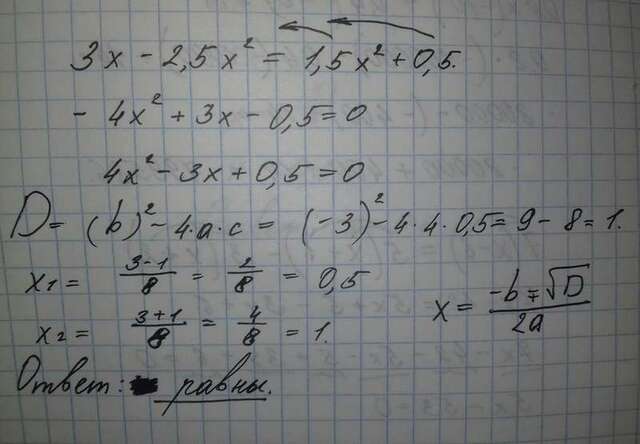 3x - 2,5x² = 1,5x² + 0,5.
- 4x² + 3x - 0,5 = 0
4x² - 3x + 0,5 = 0
D = (b)² - 4·a·c = (-3)² - 4·4·0,5 = 9 - 8 = 1.
x₁ = (3-1)/8 = 2/8 = 0,5
x₂ = (3+1)/8 = 4/8 = 1.
x = (-b ∓ √D)/2a
Ответ: равны.